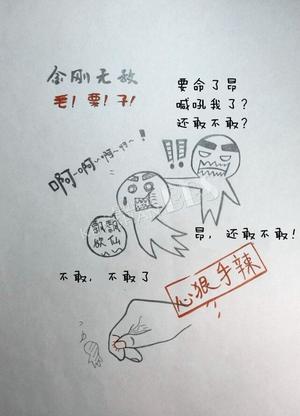 金刚无敌
毛!栗!子!
要命了昂
喊吼我了?
还敢不敢?
啊~啊~啊~啊~!
!!
飘飘
欲仙
昂,还敢不敢!
不敢,不敢了
心狠手辣